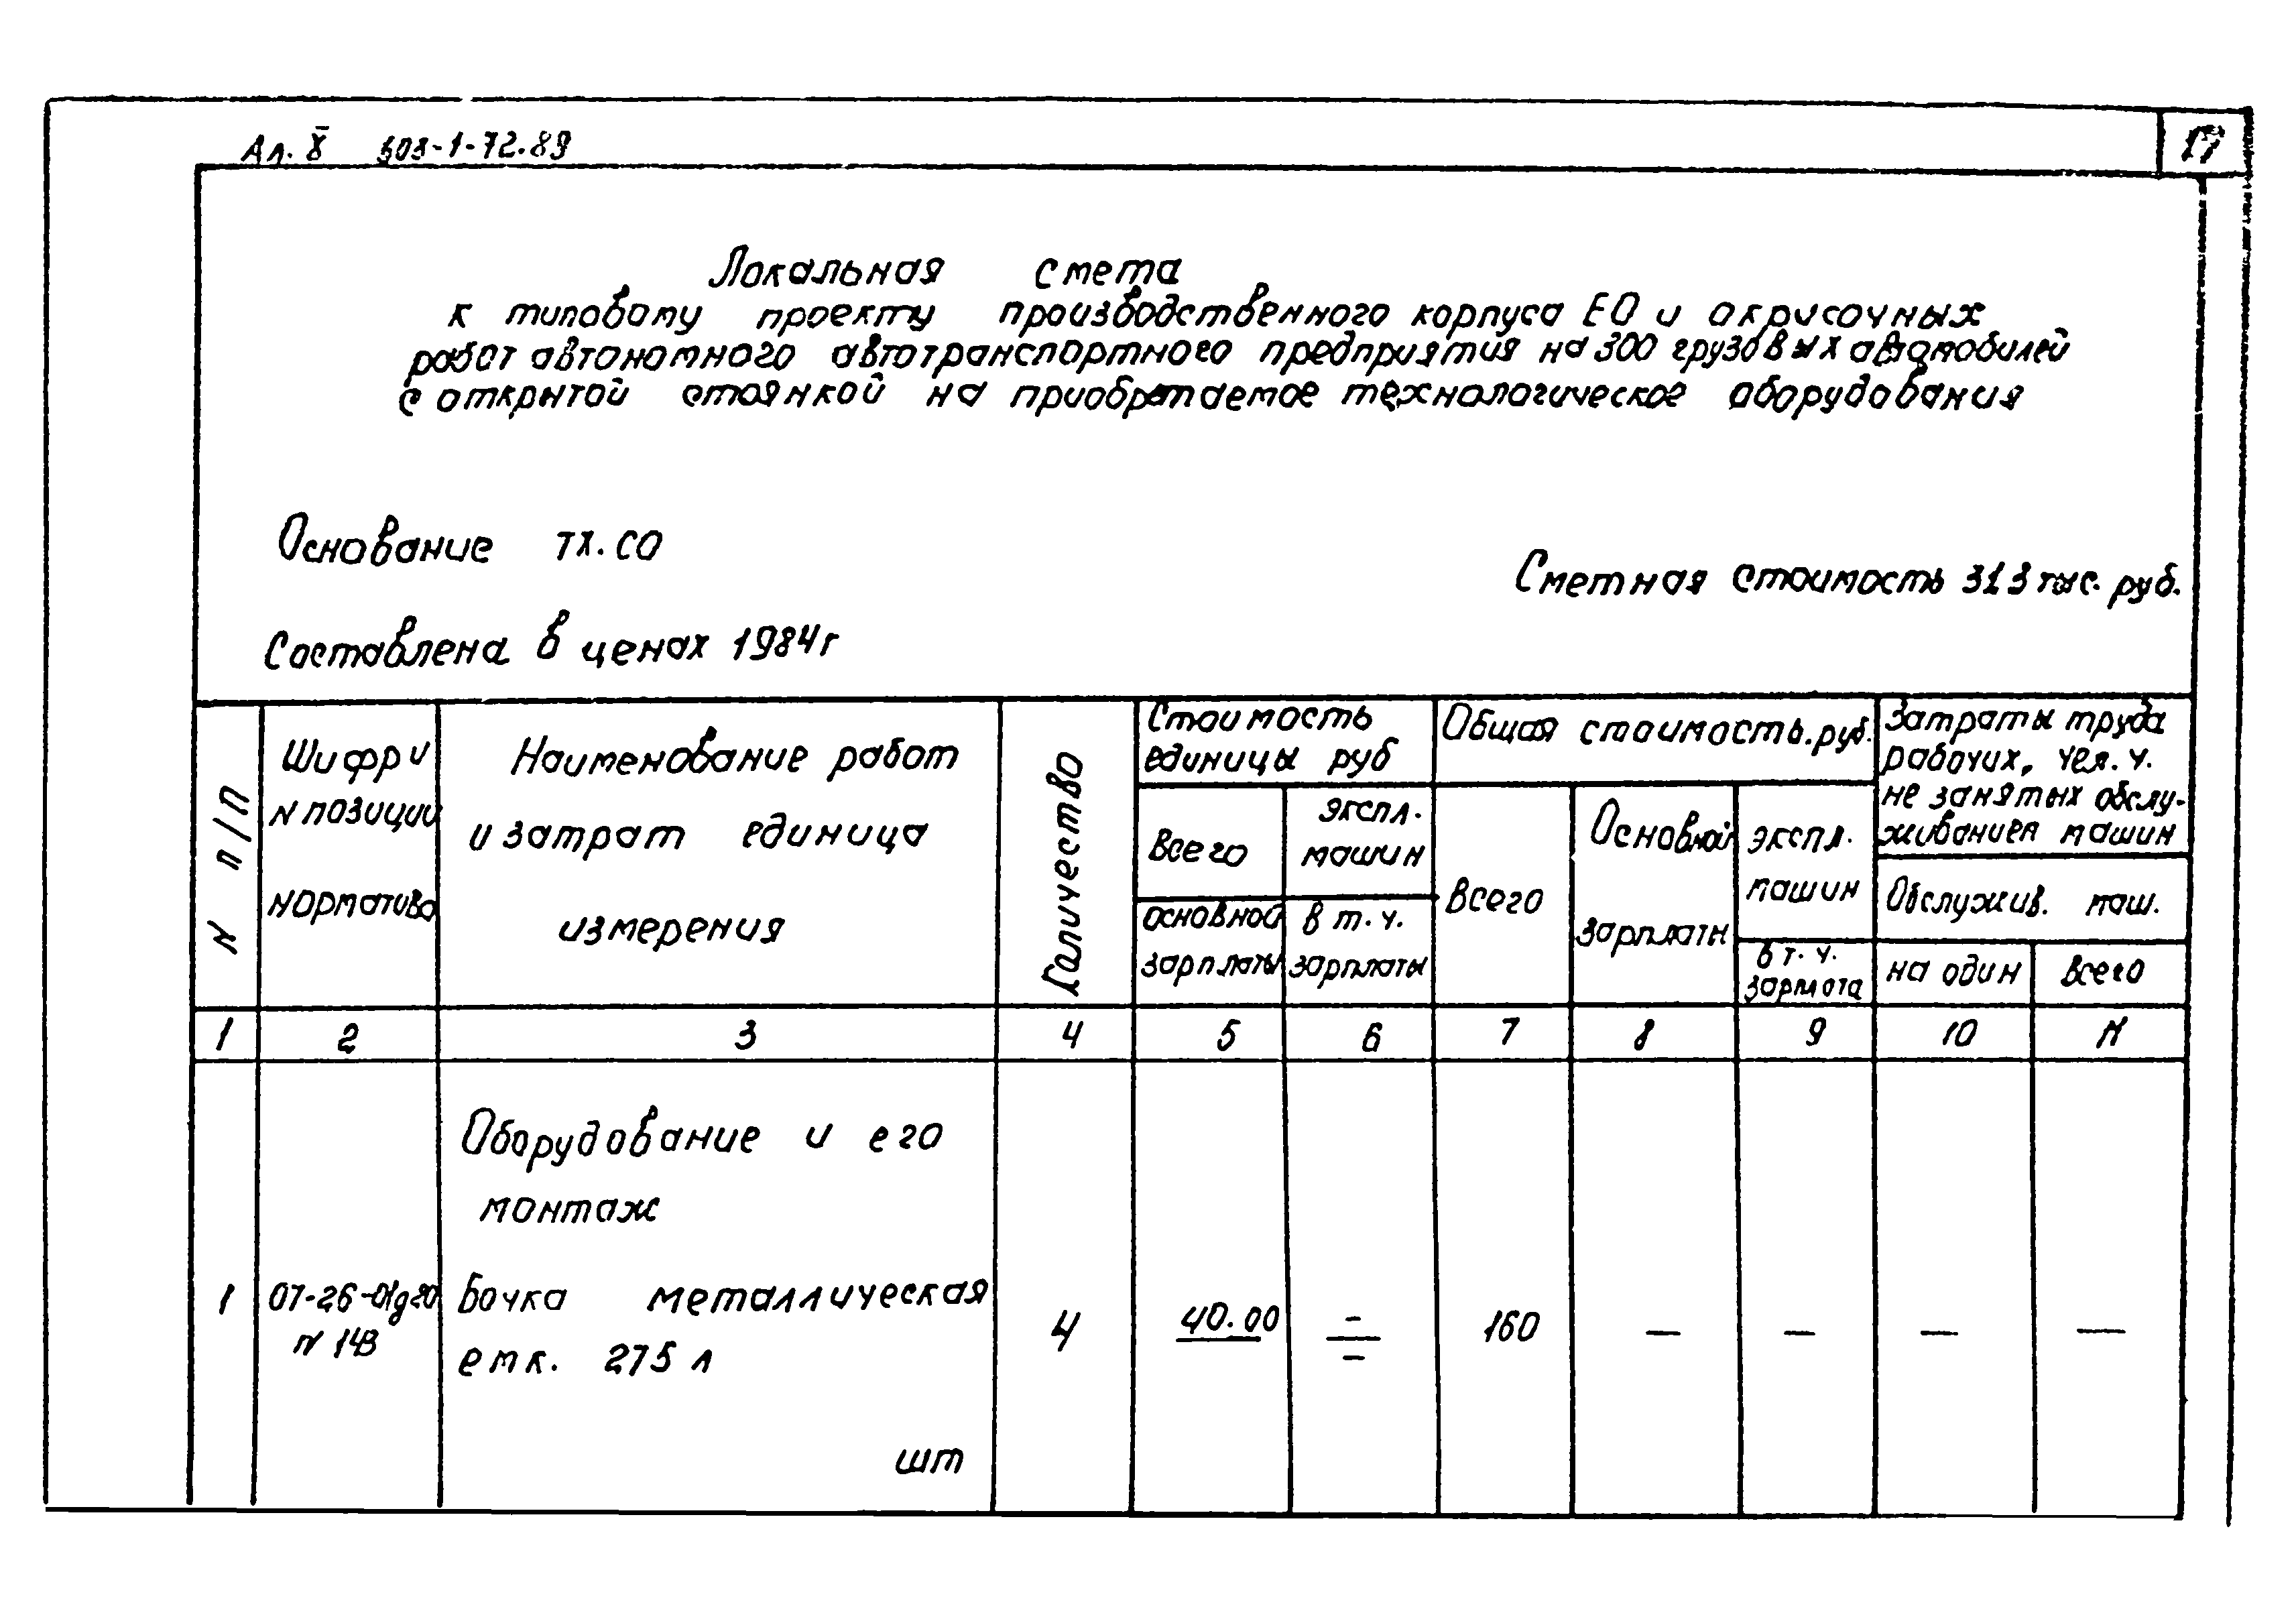 Ал. X 503-1-72.89
17
Локальная смета
к типовому проекту производственного корпуса ЕО и окрасочных
работ автономного автотранспортного предприятия на 300 грузовых автомобилей
с открытой стоянкой на приобретаемое технологическое оборудования
Основание ТХ. СО
Сметная стоимость 313 тыс. руб.
Составлена в ценах 1984г
N п/п
Шифр и
N позиции
норматива
Наименование работ
и затрат единица
измерения
Количество
Стоимость
единицы руб
Всего
основной
зарплаты
экспл.
машин
в т. ч.
зарплаты
Общая стоимость. руб.
Всего
Основной
зарплаты
экспл.
машин
в т. ч.
зарплата
Затраты труда
рабочих, чел. ч.
не занятых обслу-
живанием машин
Обслужив. маш.
на один
всего
1 2 3 4 5 6 7 8 9 10 11
Оборудование и его
монтаж
1 07-26-01 Бочка металлическая
N 143 емк. 275 л
4 40.00 – – 160 – – – –
шт